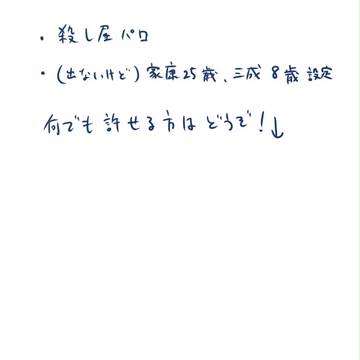 ・殺し屋パロ
・(出ないけど)家康25歳、三成8歳設定
何でも許せる方はどうぞ!↓